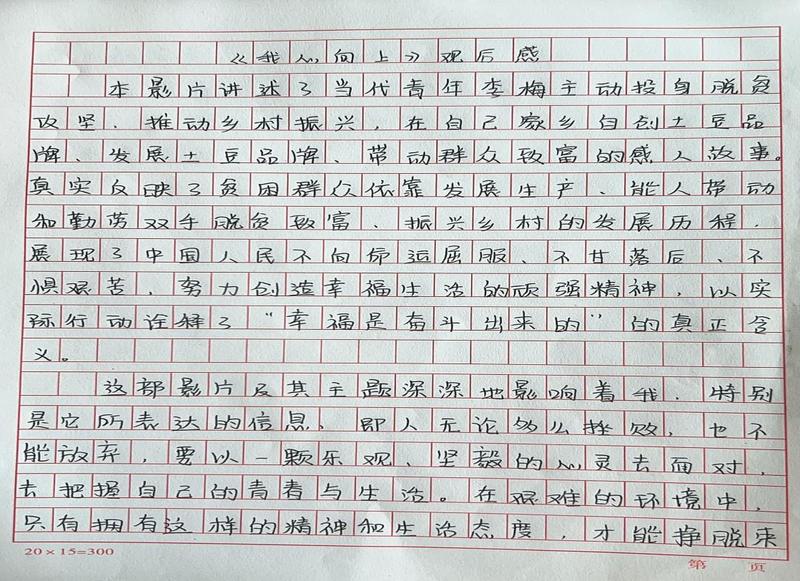 《我心向上》观后感
本影片讲述了当代青年李梅主动投身脱贫
攻坚、推动乡村振兴，在自己家乡自创土豆品
牌、发展土豆品牌、带动群众致富的感人故事。
真实反映了贫困群众依靠发展生产、能人带动
和勤劳双手脱贫致富、振兴乡村的发展历程，
展现了中国人民不向命运屈服、不甘落后、不
惧艰苦、努力创造幸福生活的顽强精神，以实
际行动诠释了“幸福是奋斗出来的”的真正含
义。
这部影片及其主题深深地影响着我，特别
是它所表达的信息，即人无论多么挫败，也不
能放弃，要以一颗乐观、坚毅的心灵去面对，
去把握自己的青春与生活。在艰难的环境中，
只有拥有这样的精神和生活态度，才能挣脱束
20×15=300
第 页